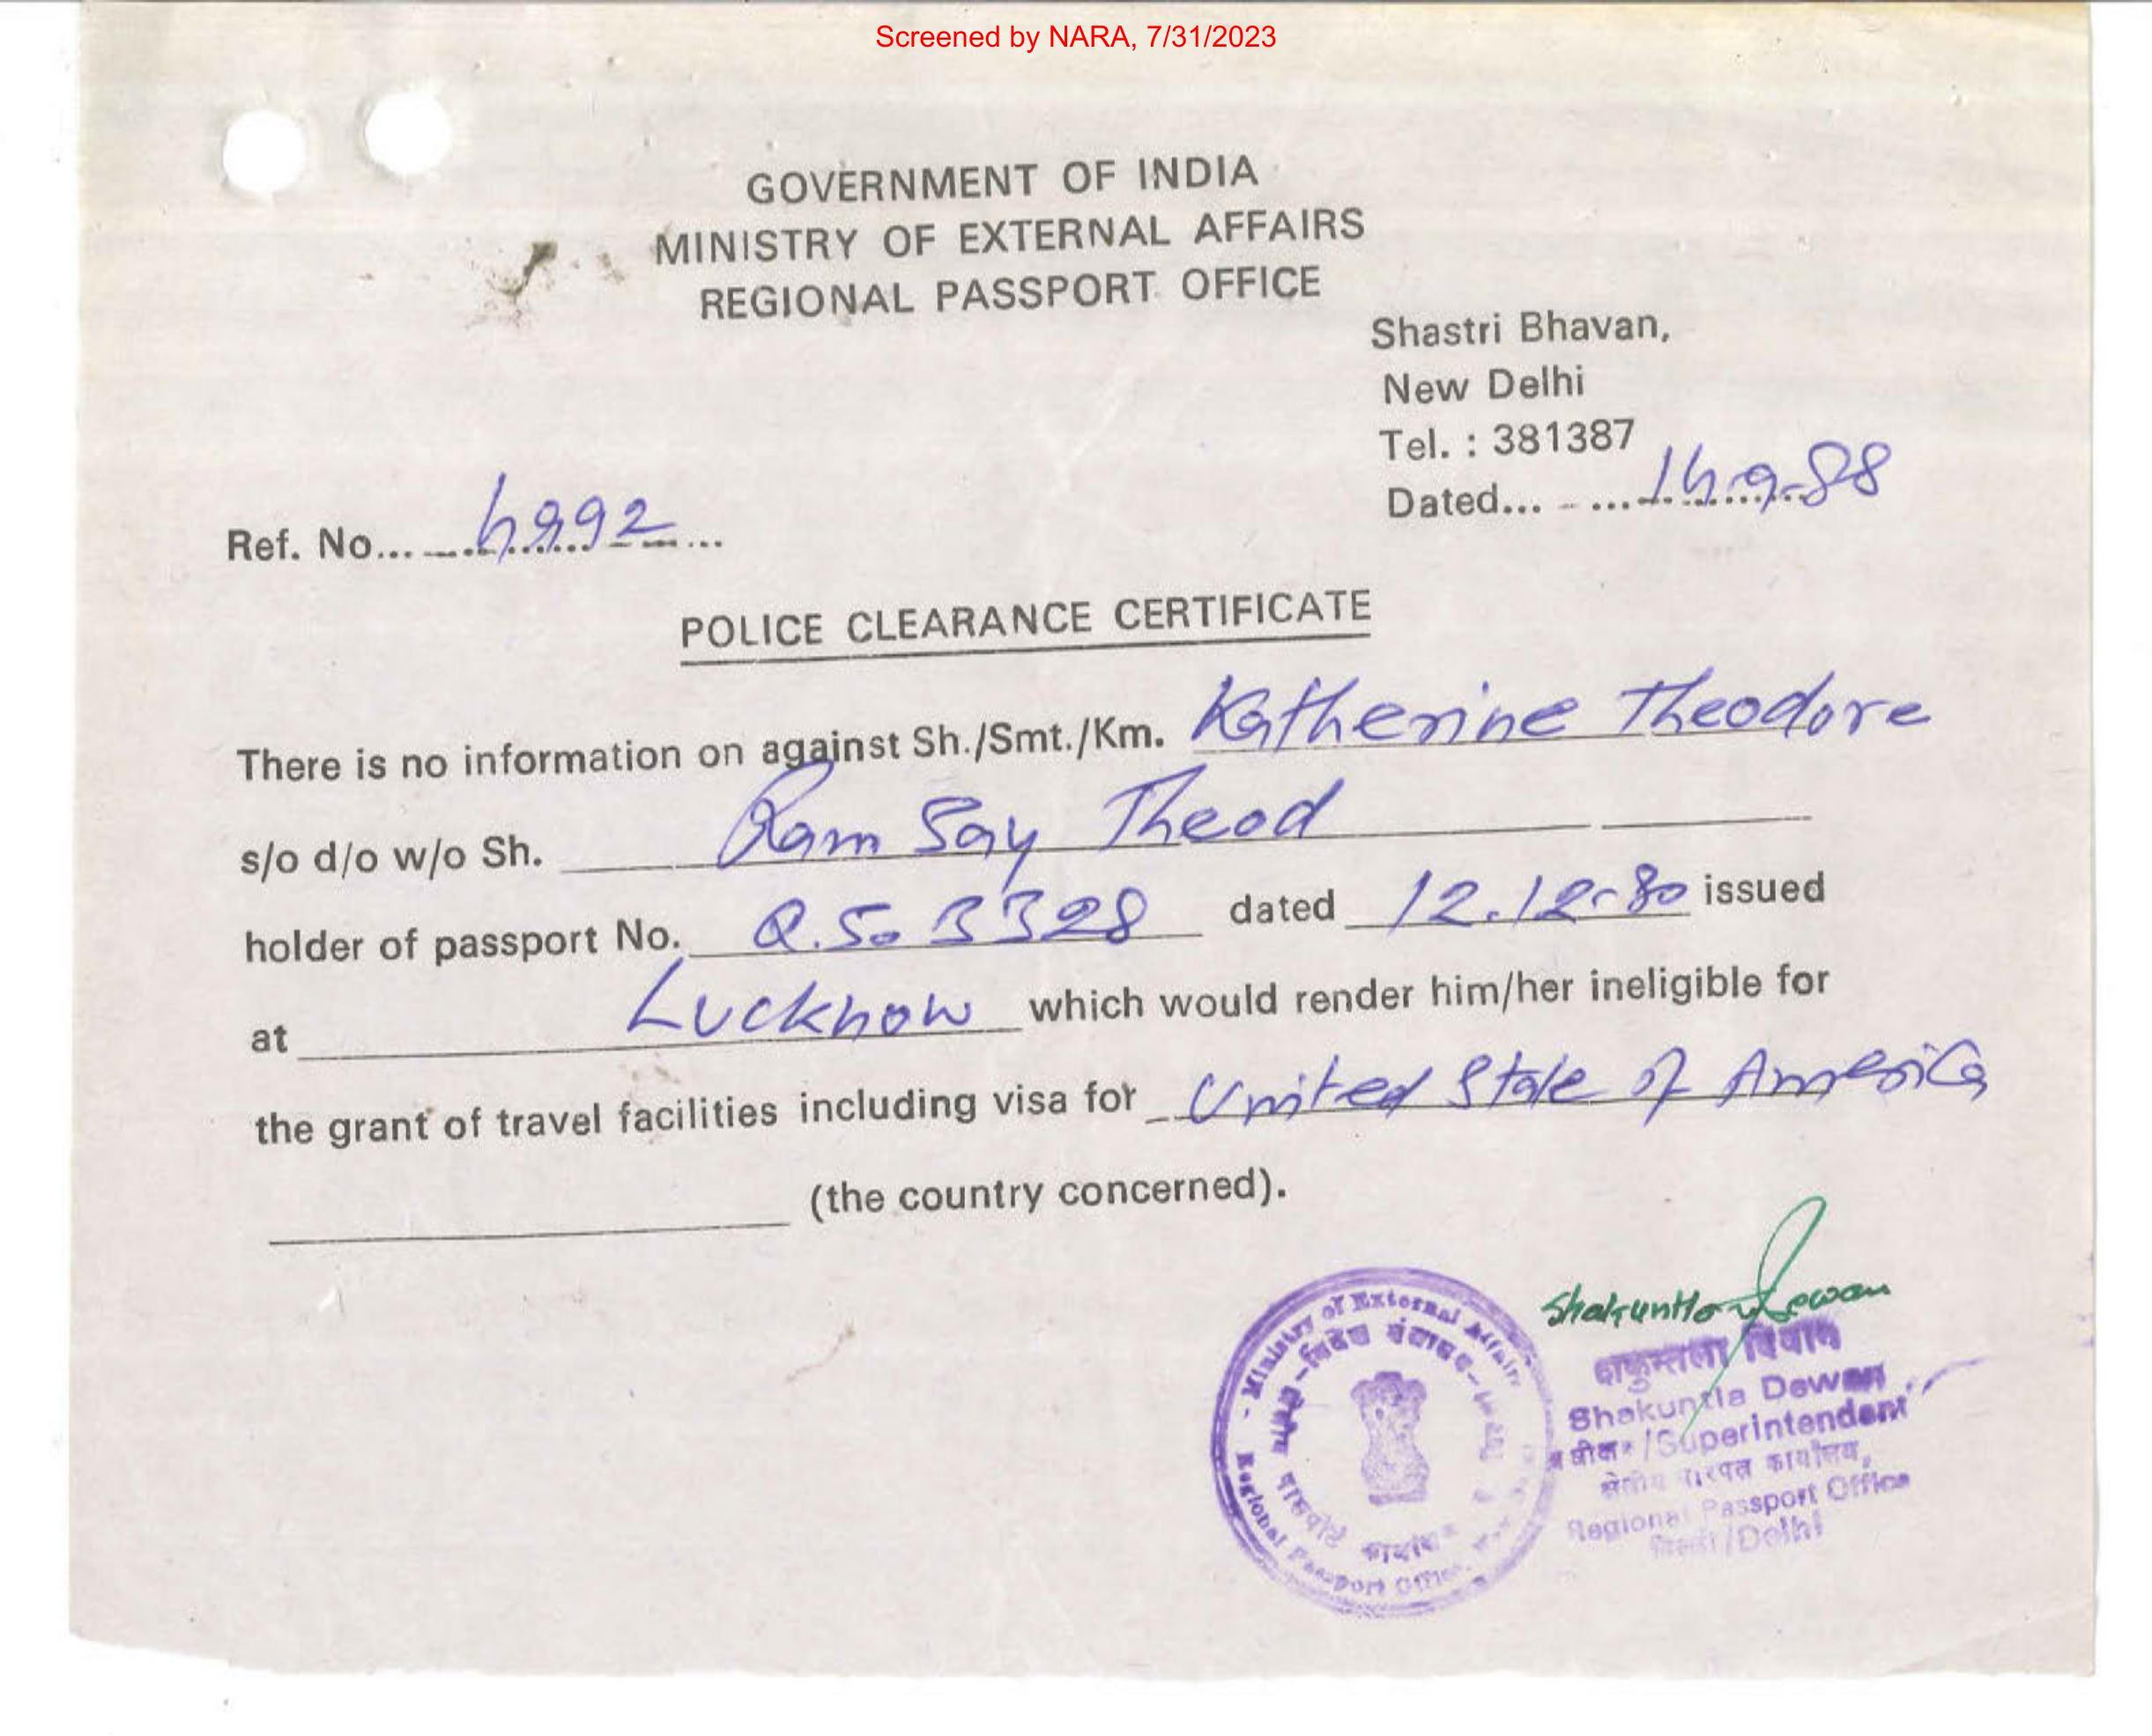 Screened by NARA, 7/31/2023
GOVERNMENT OF INDIA
MINISTRY OF EXTERNAL AFFAIRS
REGIONAL PASSPORT OFFICE
Shastri Bhavan,
New Delhi
Tel. : 381387
Dated... 14.9.88
Ref. No... 4992
POLICE CLEARANCE CERTIFICATE
There is no information on against Sh./Smt./Km. Katherine Theodore
s/o d/o w/o Sh. Ram Say Theod
holder of passport No. Q.503328 dated 12.12-80 issued
at Lucknow which would render him/her ineligible for
the grant of travel facilities including visa for United State of America
(the country concerned).
Shakuntla Dewan
Ministry of External Affairs
Regional Passport Office
शकुन्तला दिवान
Shakuntla Dewan
/Superintendent
कार्यालय,
Regional Passport Office
/Delhi